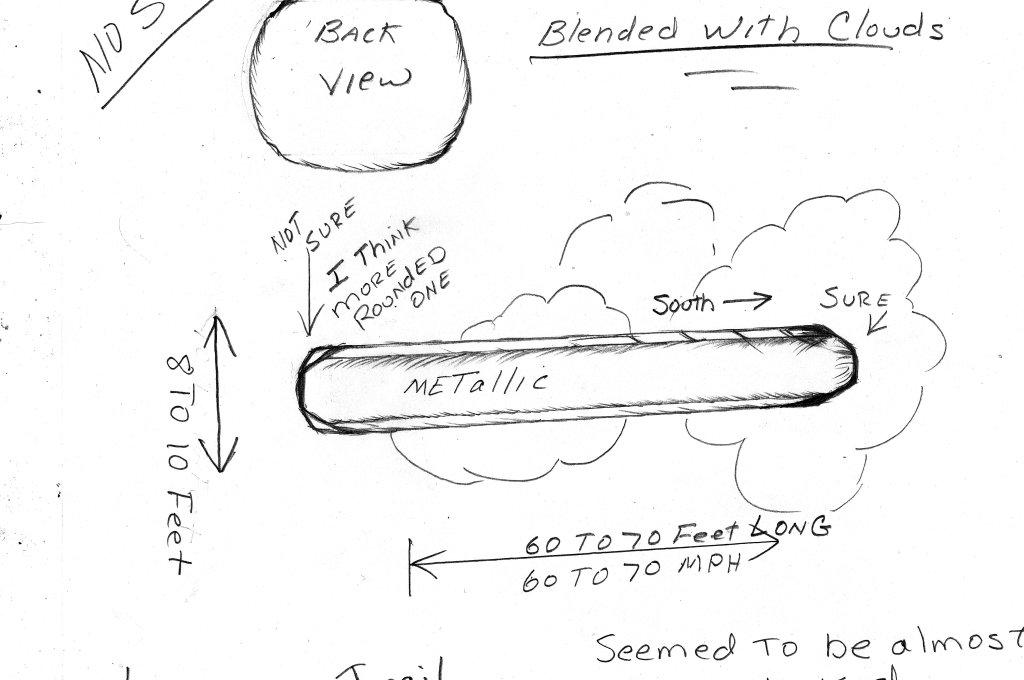 NO S
BACK
VIEW
Blended With Clouds
NOT
SURE
I THINK
MORE
ROUNDED
ONE
South
SURE
METallic
8 TO 10 Feet
60 TO 70 Feet LONG
60 TO 70 MPH
Seemed To be almost